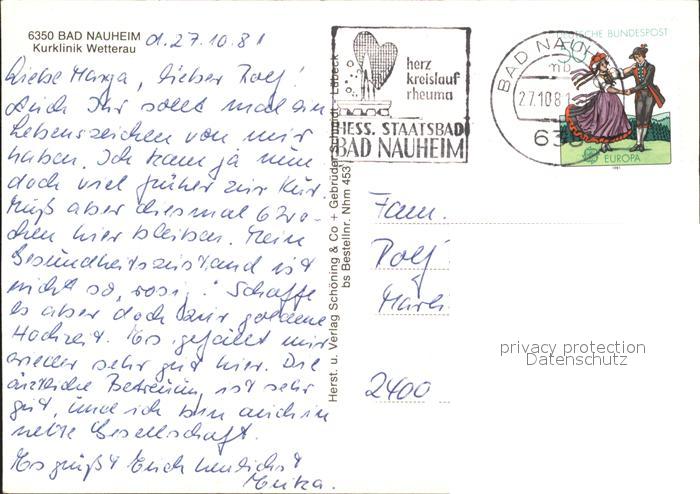 6350 BAD NAUHEIM
Kurklinik Wetterau
d. 27.10.81
Liebe Marga, lieber Rolf!
Auch Ihr sollt mal ein
Lebenszeichen von mir
haben. Ich kam ja nun
doch viel früher zur Kur.
Muß aber diesmal 6 Wo-
chen hier bleiben. Mein
Gesundheitszustand ist
nicht so „rosig“. Schaffe
es aber doch zur goldene
Hochzeit. Es gefällt mir
wieder sehr gut hier. Die
ärztliche Betreuung ist sehr
gut, und ich bin auch in
netter Gesellschaft.
Es grüßt Euch herzlichst
Herst. u. Verlag Schöning & Co + Gebrüder Schmidt, Lübeck
bs Bestellnr. Nhm 453
herz
kreislauf
rheuma
HESS. STAATSBAD
BAD NAUHEIM
BAD NAUH
mb
27.10.81
63
DEUTSCHE BUNDESPOST
50
EUROPA
1981
Fam.
Rolf
2400
privacy protection
Datenschutz